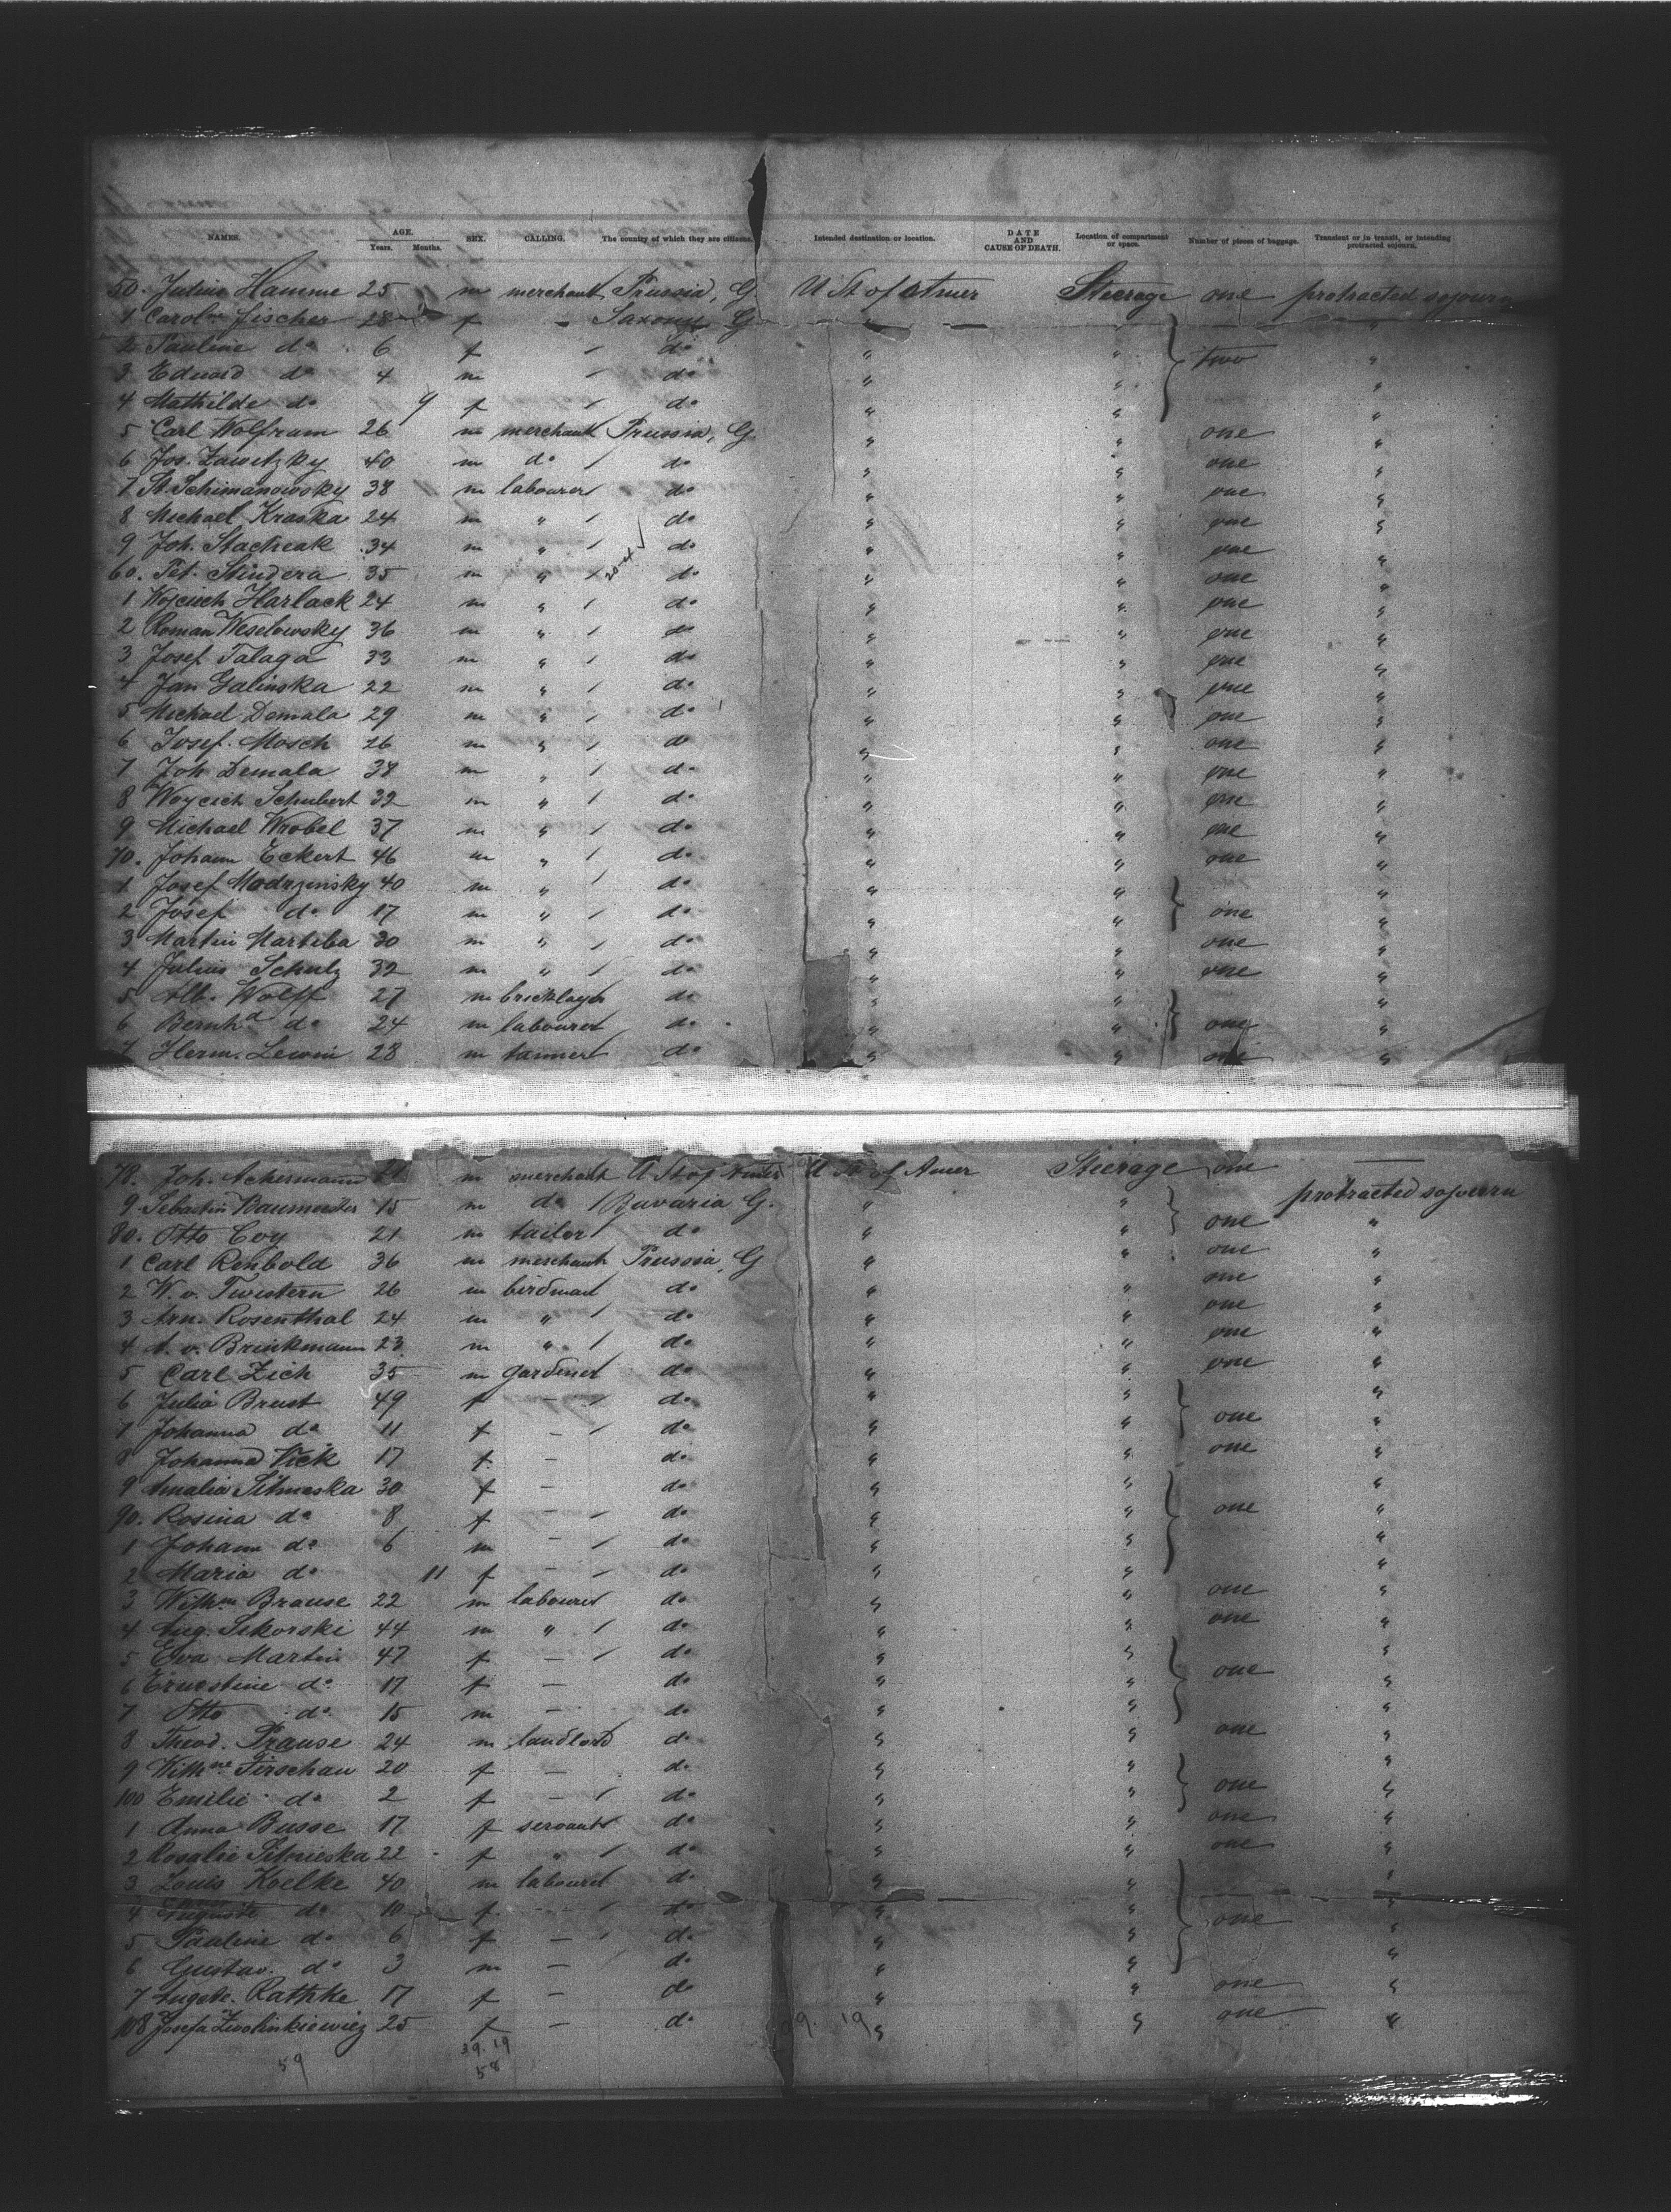 NAMES. AGE. Years. Months. SEX. CALLING. The country of which they are citizens. Intended destination or location. DATE AND CAUSE OF DEATH. Location of compartment or space. Number of pieces of baggage. Transient or in transit, or intending protracted sojourn.
50. Julius Hamme 25 m merchant Prussia, G. U St of Amer Steerage one protracted sojourn
1 Carolne Fischer 28 f - Saxony G. "
2 Pauline do 6 f do " " two "
3 Eduard do 4 m do " " "
4 Mathilde do 9 f do " " "
5 Carl Wolfram 26 m merchant Prussia, G. " " one "
6 Jos. Zawitzky 40 m do do " " one "
7 St. Schimanowsky 38 m labourer do " " one "
8 Michael Kraska 24 m " do " " one "
9 Joh. Stacheak 34 m " do " " one "
60. Pet. Skindera 35 m " do " " one "
1 Wojciech Harlack 24 m " do " " one "
2 Roman Weselowsky 36 m " do " " one "
3 Josef Talaga 33 m " do " " one "
4 Jan Galinska 22 m " do " " one "
5 Michael Domala 29 m " do " " one "
6 Josef Mosch 26 m " do " " one "
7 Joh Demala 38 m " do " " one "
8 Woyciech Schubert 32 m " do " " one "
9 Michael Wrobel 37 m " do " " one "
70. Johann Eckert 46 m " do " " one "
1 Josef Modrzinsky 40 m " do " " "
2 Josef do 17 m " do " " one "
3 Martin Martiba 30 m " do " " one "
4 Julius Schulz 32 m " do " " one "
5 Alb. Wolff 27 m bricklayer do " " "
6 Bernhd do 24 m labourer do " " one "
7 Herm. Lewin 28 m tanner do " " one "
78. Joh. Ackermann m merchant U St of Amer U St of Amer Steerage one —
9 Sebastin Baumeister 15 m do Bavaria G. " " protracted sojourn
80. Otto Coy 21 m tailor do " " one "
1 Carl Renbold 36 m merchant Prussia, G " " one "
2 W. v. Twistern 26 m birdman do " " one "
3 Arn. Rosenthal 24 m " do " " one "
4 A. v. Brinkmann 23 m " do " " one "
5 Carl Zich 35 m gardener do " " one "
6 Julia Brust 49 f - do " " "
7 Johanna do 11 f - do " " one "
8 Johanna Vick 17 f - do " " one "
9 Amalia Sitnieska 30 f - do " " "
90. Rosina do 8 f - do " " one "
1 Johann do 6 m - do " " "
2 Maria do 11 f - do " " "
3 Wilhm Brause 22 m labourer do " " one "
4 Aug. Sikorski 44 m " do " " one "
5 Eva Martin 47 f - do " " "
6 Ernestine do 17 f - do " " one "
7 Otto do 15 m - do " " "
8 Theod. Prause 24 m landlord do " " one "
9 Wilhne Firschau 20 f - do " " "
100 Emilie do 2 f - do " " one "
1 Anna Busse 17 f servant do " " one "
2 Rosalie Sitnieska 22 f " do " " one "
3 Louis Koelke 40 m labourer do " " "
4 Auguste do 10 f - do " " "
5 Pauline do 6 f - do " " one "
6 Gustav. do 3 m - do " " "
7 Augste. Rathke 17 f - do " " one "
108 Josefa Zwolinkiewicz 25 f - do " " one "
59 39.19 19
58